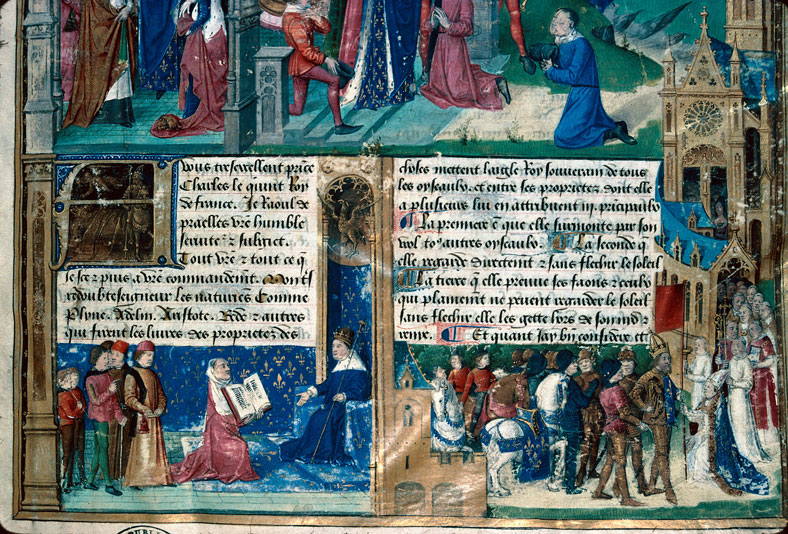 A vous tresexellent prince
Charles le quint Roy
de france. Je Raoul de
praelles vre humble
seruite⁊ ⁊ subiect.
Tout vre ⁊ tout ce q̄
Je sce ⁊ puis a vre commandemt. Mont
redoubte seigneur les naturiēs Comme
plyne. Adelin. Aristote. Bede ⁊ autres
qui firent les liures des proprietez des
choses mettent laigle Roy souuerain de tous
les oyseaulx. et entre ses proprietez dont elle
a plusieurs lui en attribuent iii principaulx
La premiere ē que elle surmonte par son
vol to⁹ autres oyseaulx. La seconde q̄
elle regarde directemt ⁊ sans flechir le soleil
La tierce q̄ elle prenne ses faons ⁊ ceulx
qui plainemt ne peuent regarder le soleil
sans flechir elle les gette hors de son nid ⁊
Et quant Jay biē considere
PUBLI